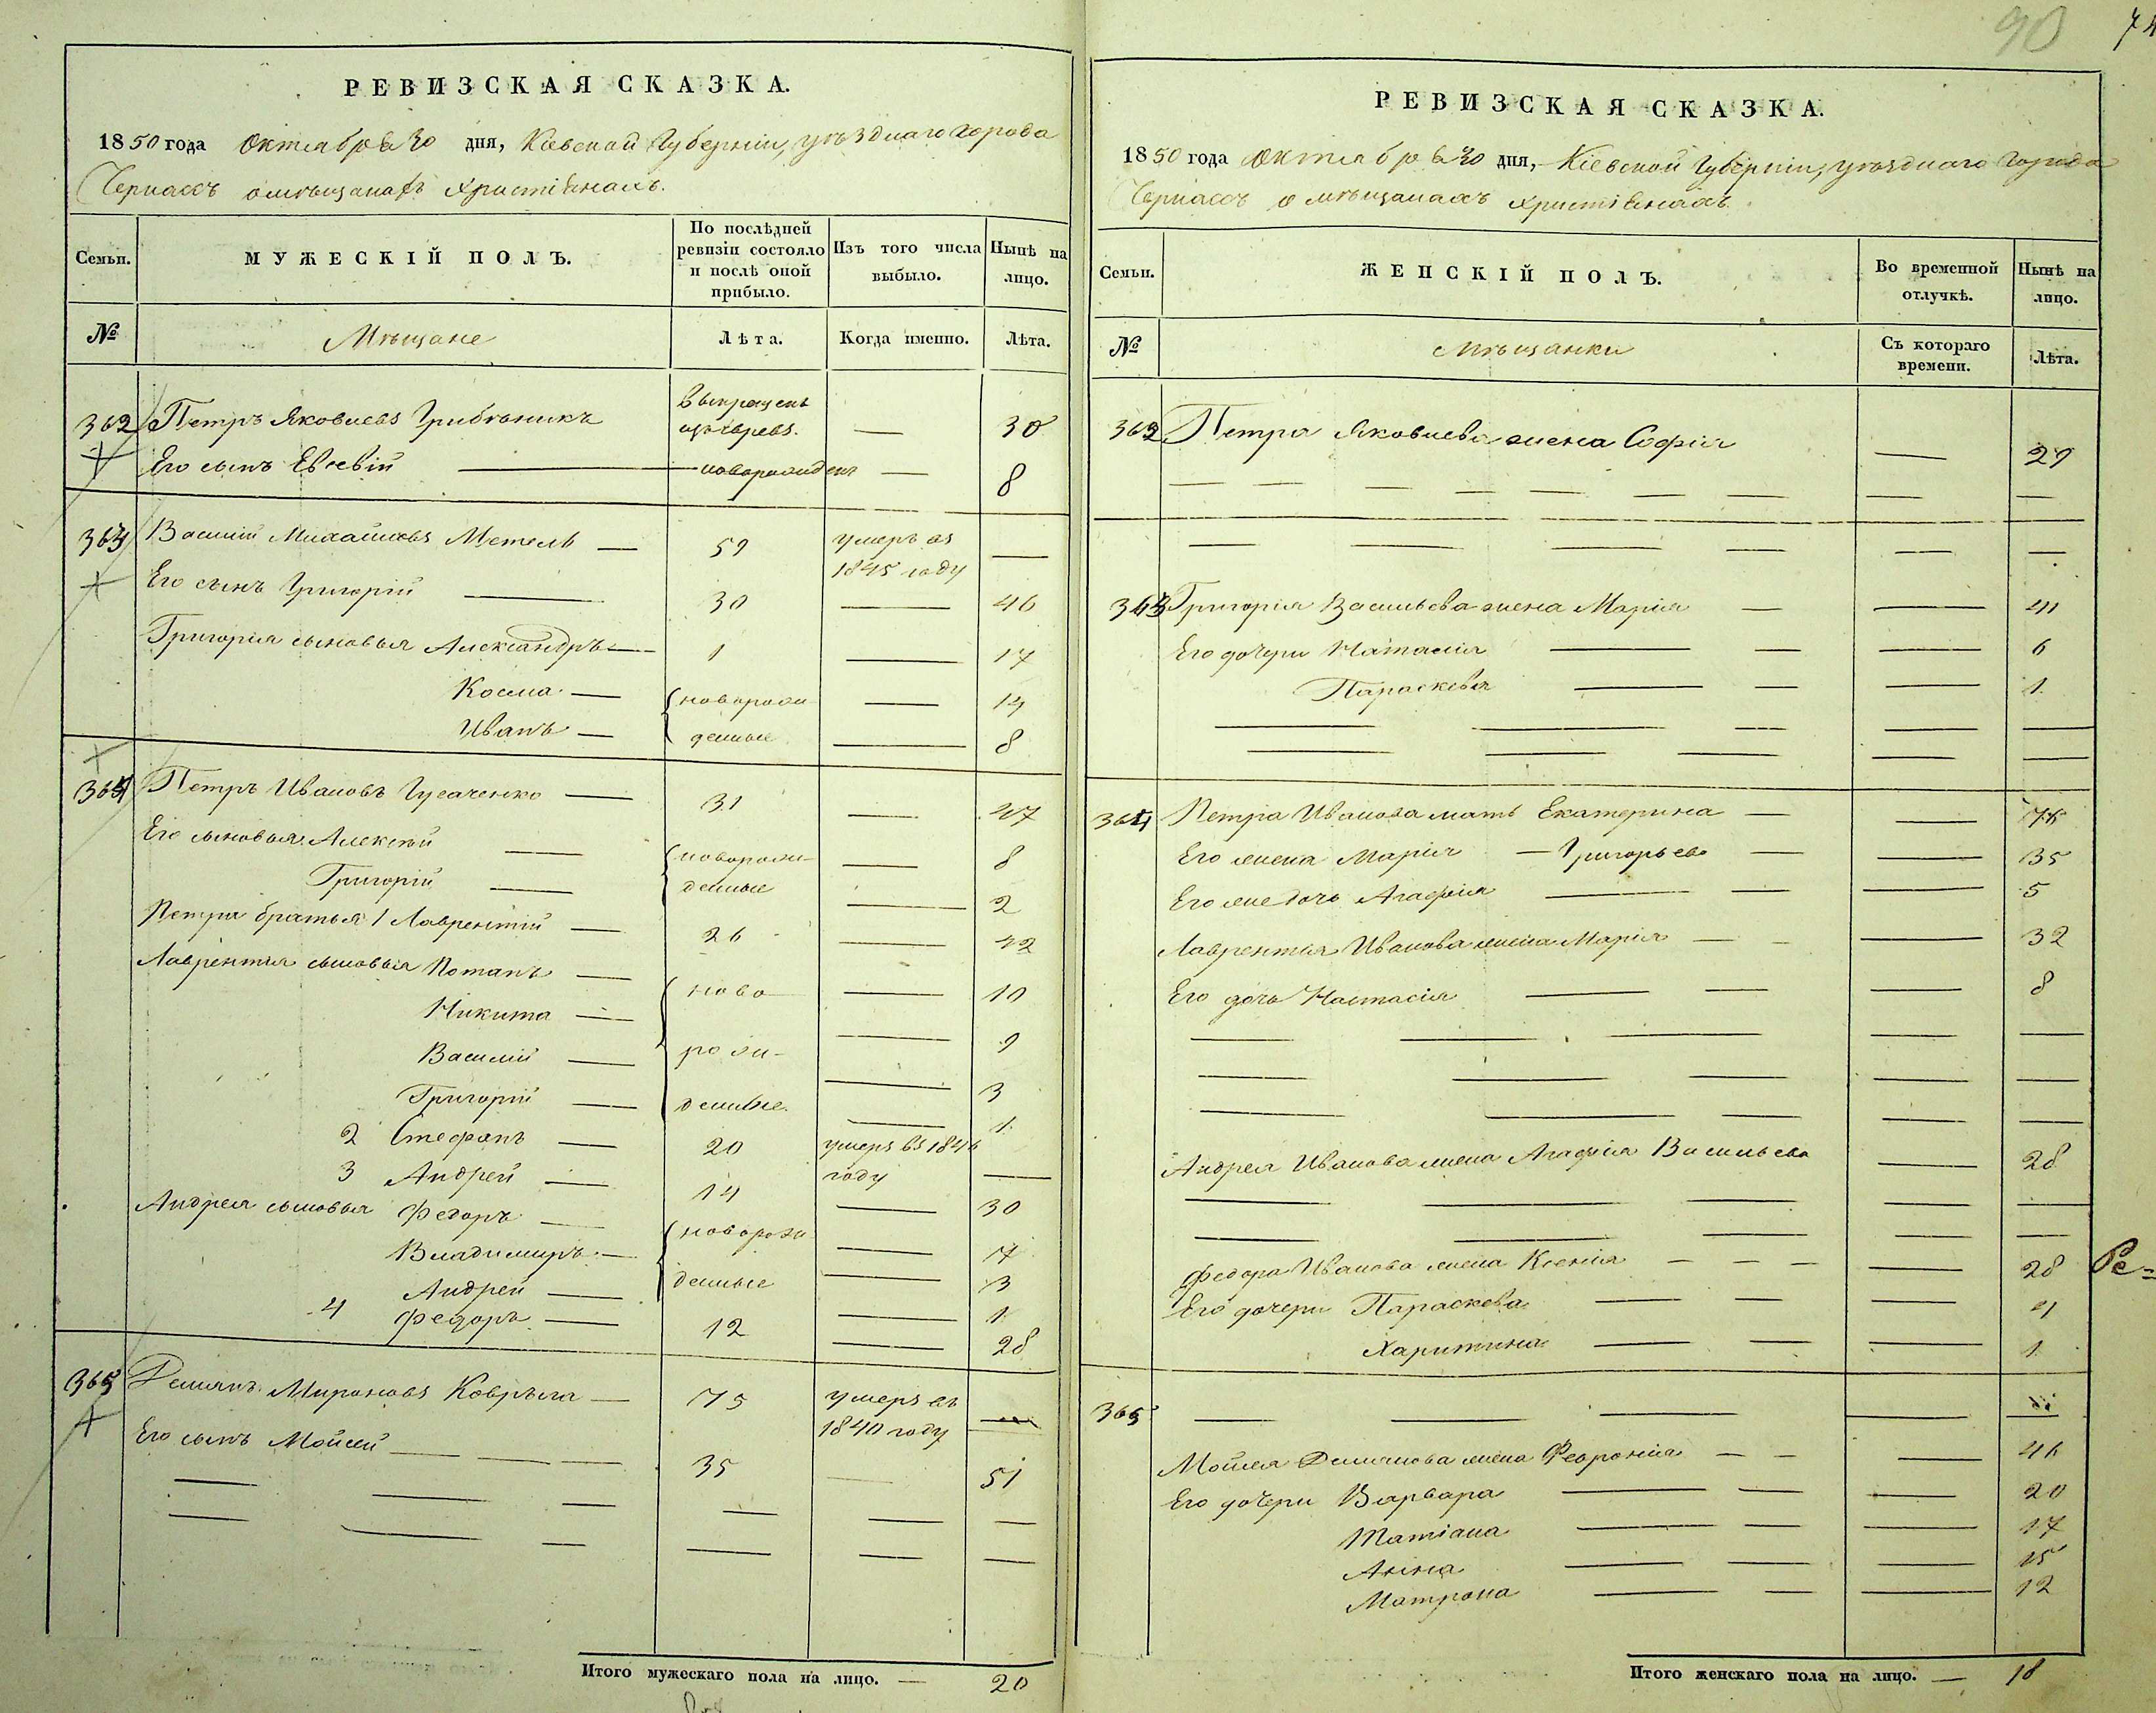 90
74
РЕВИЗСКАЯ СКАЗКА.
1850 года Октября 30 дня, Кіевской Губерніи, уѣзднаго города
Черкасъ о мѣщанахъ христіянахъ.
Семьи.
МУЖЕСКІЙ ПОЛЪ.
По послѣдней ревизіи состояло и послѣ оной прибыло.
Изъ того числа выбыло.
Нынѣ на лицо.
№
Мѣщане
Лѣта.
Когда именно.
Лѣта.
362 Петръ Яковлевъ выкрещенъ изъ евреевъ. — 30
Его сынъ Евсевій — новорожденъ — 8
363 Василій Михайловъ Метель — 59 умеръ въ 1845 году —
Его сынъ Григорій — 30 — 46
Григорія сыновья Александръ — 1 — 17
Косма — новорож- — 14
Иванъ — денные — 8
364 Петръ Ивановъ Гусаченко — 31 — 47
Его сыновья Алексѣй — новорож- — 8
Григорій — денные — 2
Петра братья 1 Лаврентій — 26 — 42
Лаврентія сыновья Потапъ — ново — 10
Никита — 9
Василій — рож- — 3
Григорій — денные. — 1
2 Стефанъ — 20 умеръ въ 1846 году —
3 Андрей — 14 — 30
Андрея сыновья Федоръ — новорож — 7
Владимиръ — денные — 3
Андрей — 1
4 Федоръ — 12 — 28
365 Демянъ Мироновъ — 75 умеръ въ 1840 году —
Его сынъ Мойсей — 35 — 51
Итого мужескаго пола на лицо. — 20
РЕВИЗСКАЯ СКАЗКА.
1850 года Октября 30 дня, Кіевской Губерніи, уѣзднаго города
Черкасъ о мѣщанахъ христіянахъ.
Семьи.
ЖЕНСКІЙ ПОЛЪ.
Во временной отлучкѣ.
Нынѣ на лицо.
№
Мѣщанки
Съ котораго времени.
Лѣта.
362 Петра Яковлева жена Софія — 29
363 Григорія Васильева жена Марія — 41
Его дочери Наталія — 6
Параскева — 1
364 Петра Иванова мать Екатерина —
Его жена Марія — Григорьева — 35
Его же дочь Агафія — 5
Лаврентія Иванова жена Марія — 32
Его дочь Настасія — 8
Андрея Иванова жена Агафія Васильева — 28
Федора Иванова жена Ксенія — 28
Его дочери Параскева — 4
Харитина — 1
365
Мойсея Демянова жена Февронія — 46
Его дочери Варвара — 20
Татіана — 17
Анна — 15
Матрона — 12
Ре=
Итого женскаго пола на лицо. — 18